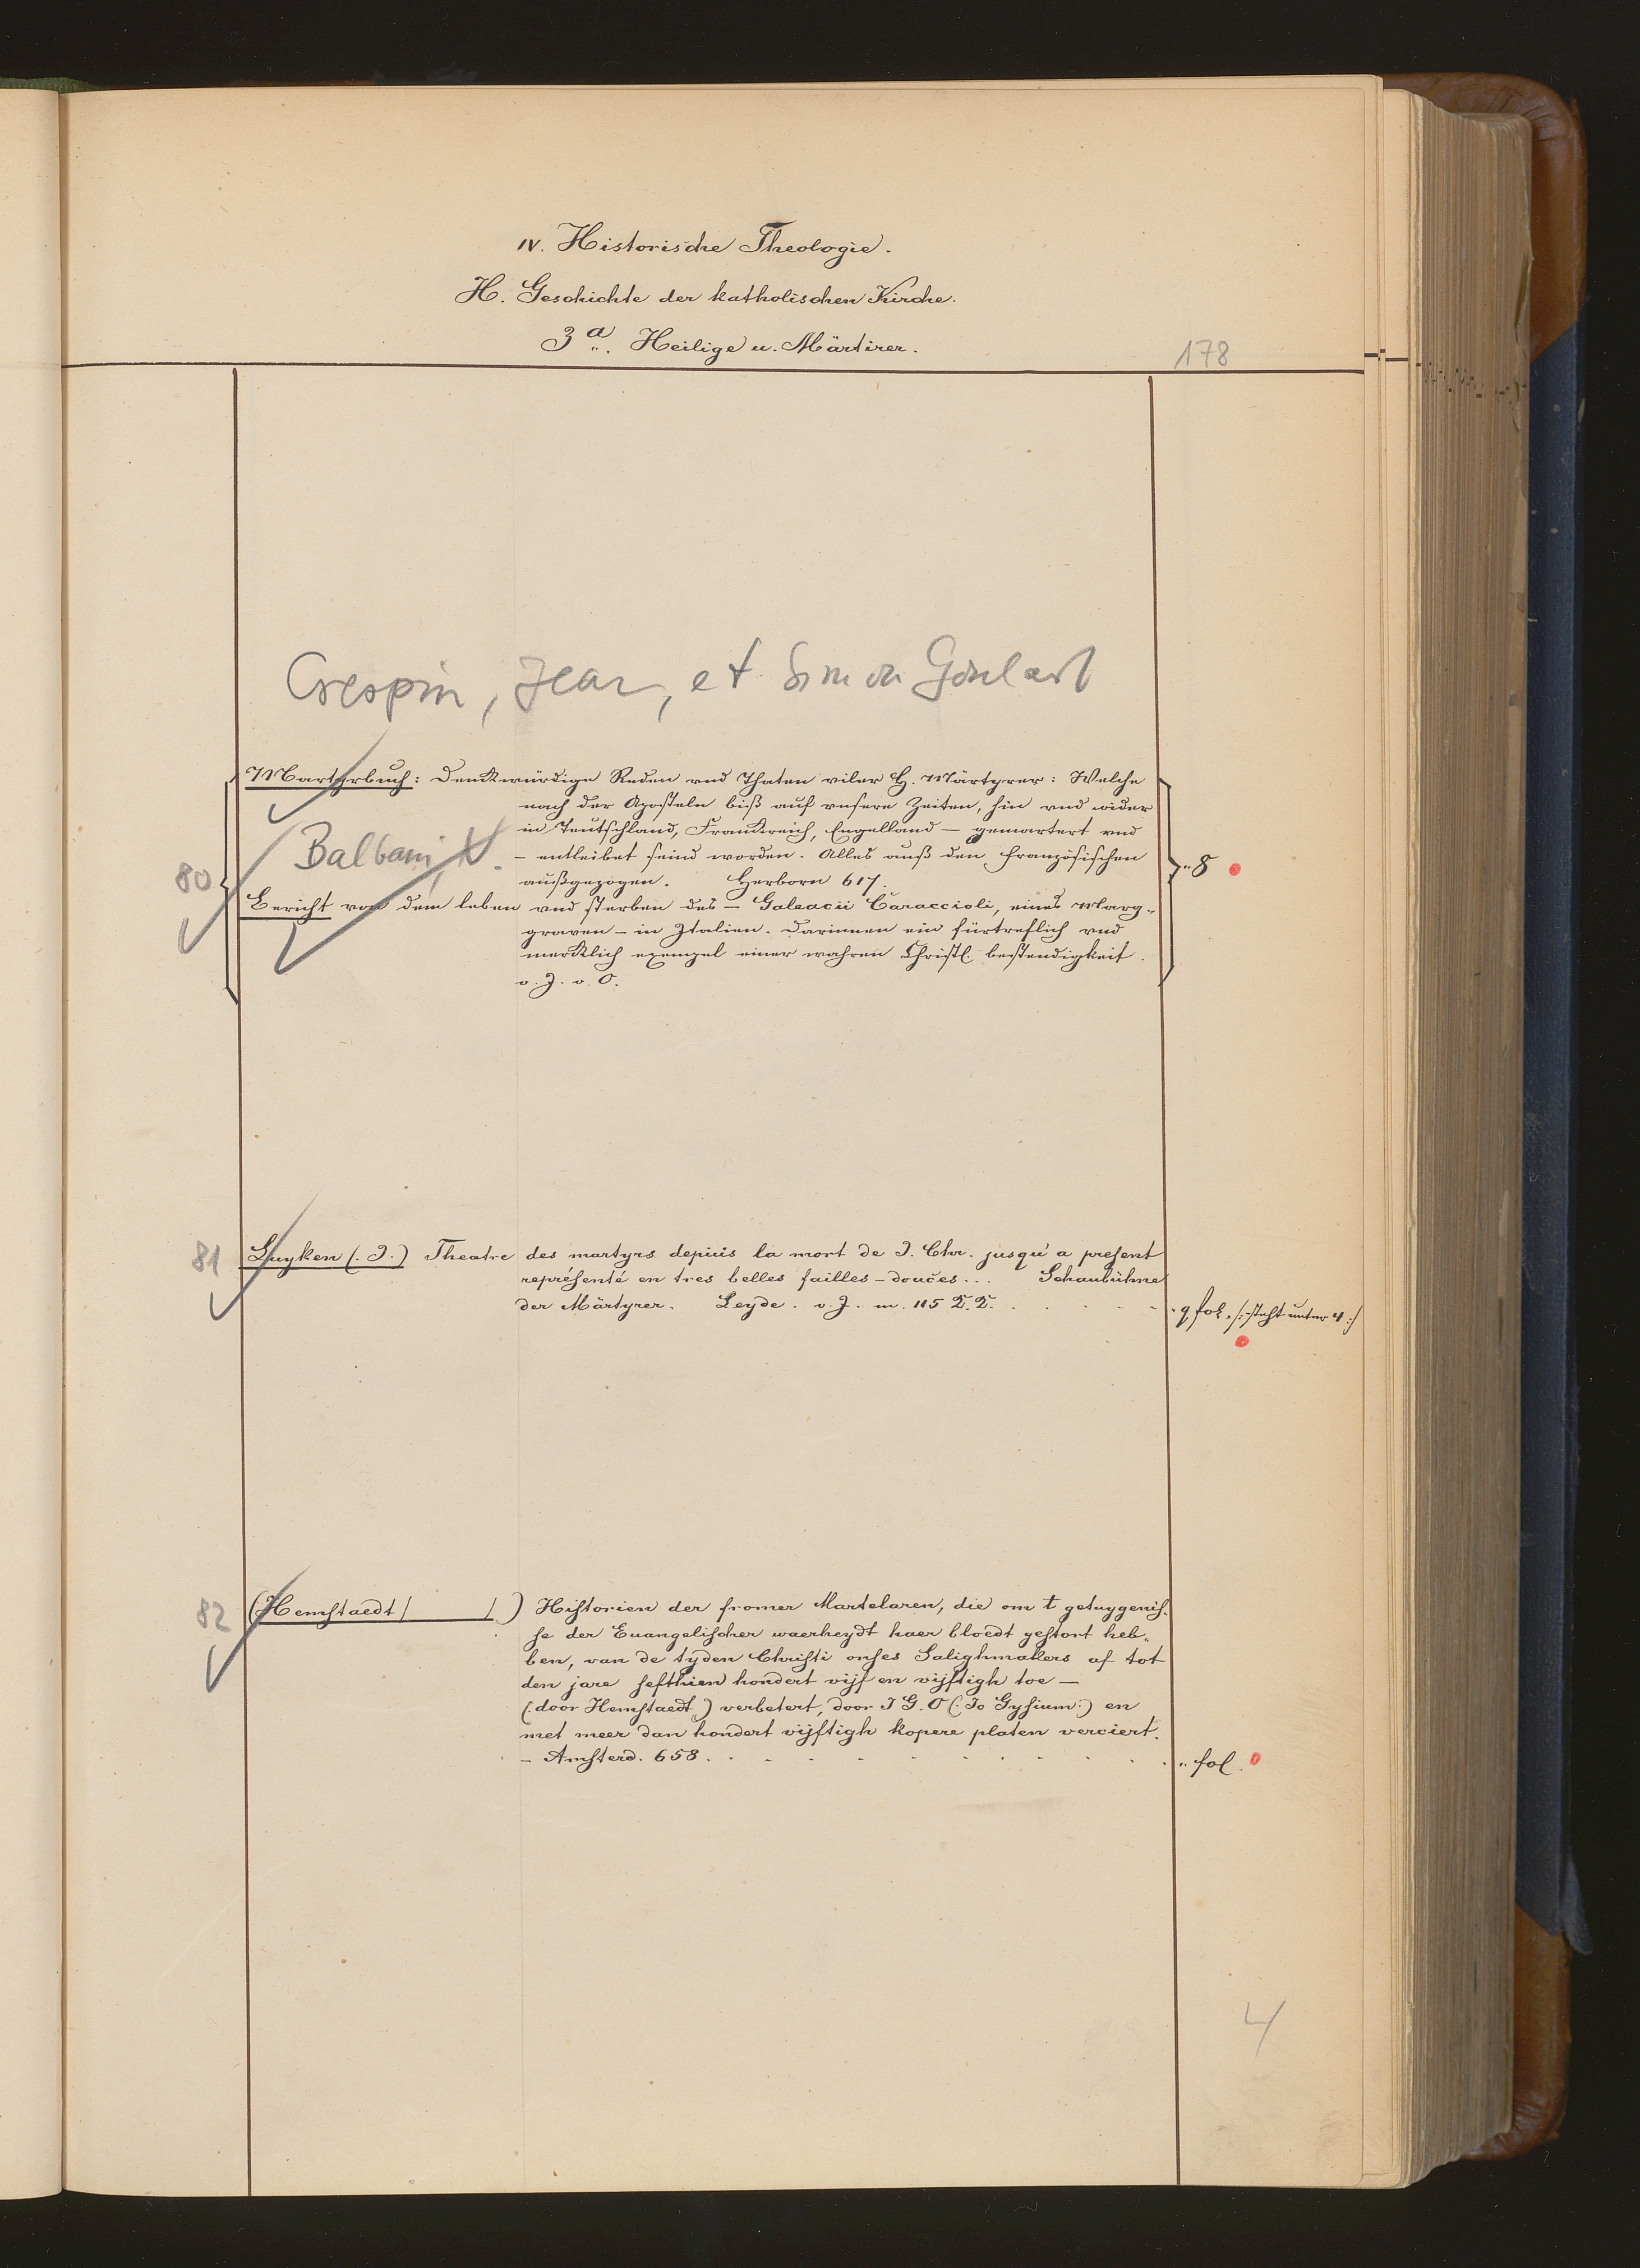 IV. Historische Theologie.
H. Geschichte der katholischen Kirche.
3 a. Heilige u. Märtirer.
178
Crespin, Jean, et Simon Goulart
Martyrbuch: Denkwürdige Reden vnd Thaten viler H. Märtyrer: Welche
nach der Aposteln biß auf vnsere Zeiten, hin vnd wider
in Teutschland, Franckreich, Engelland – gemartert vnd
Balbani, N.
– entleibet seind worden. Alles auß den französischen
80
" 8
außgezogen. Herborn 617.
Bericht von dem leben vnd sterben des – Galeacii Caraccioli, eines Marg-
graven – in Italien. Darinnen ein fürtreflich vnd
mercklich exempel einer wahren Christl. bestendigkeit.
o. J. o. O.
81
Luyken (. J.) Theatre des martyrs depuis la mort de J. Chr. jusqu'a present
représenté en tres belles failles – douces... Schaubühne
der Märtyrer. Leyde. o. J. m. 115 T. T.
q fol. /: steht unter 4 :/
82
(Hemstaedt / /) Historien der fromer Martelaren, die om t getuygenis-
se der Euangelischer waerheydt haer bloedt gestort heb-
ben, van de tyden Christi onses Salighmakers af tot
den jare sesthien hondert vijf en vijftigh toe –
(: door Hemstaedt.) verbetert, door J G. O (: Jo Gysium:) en
met meer dan hondert vijftigh kopere platen verciert.
– Amsterd. 658.
" fol.
4